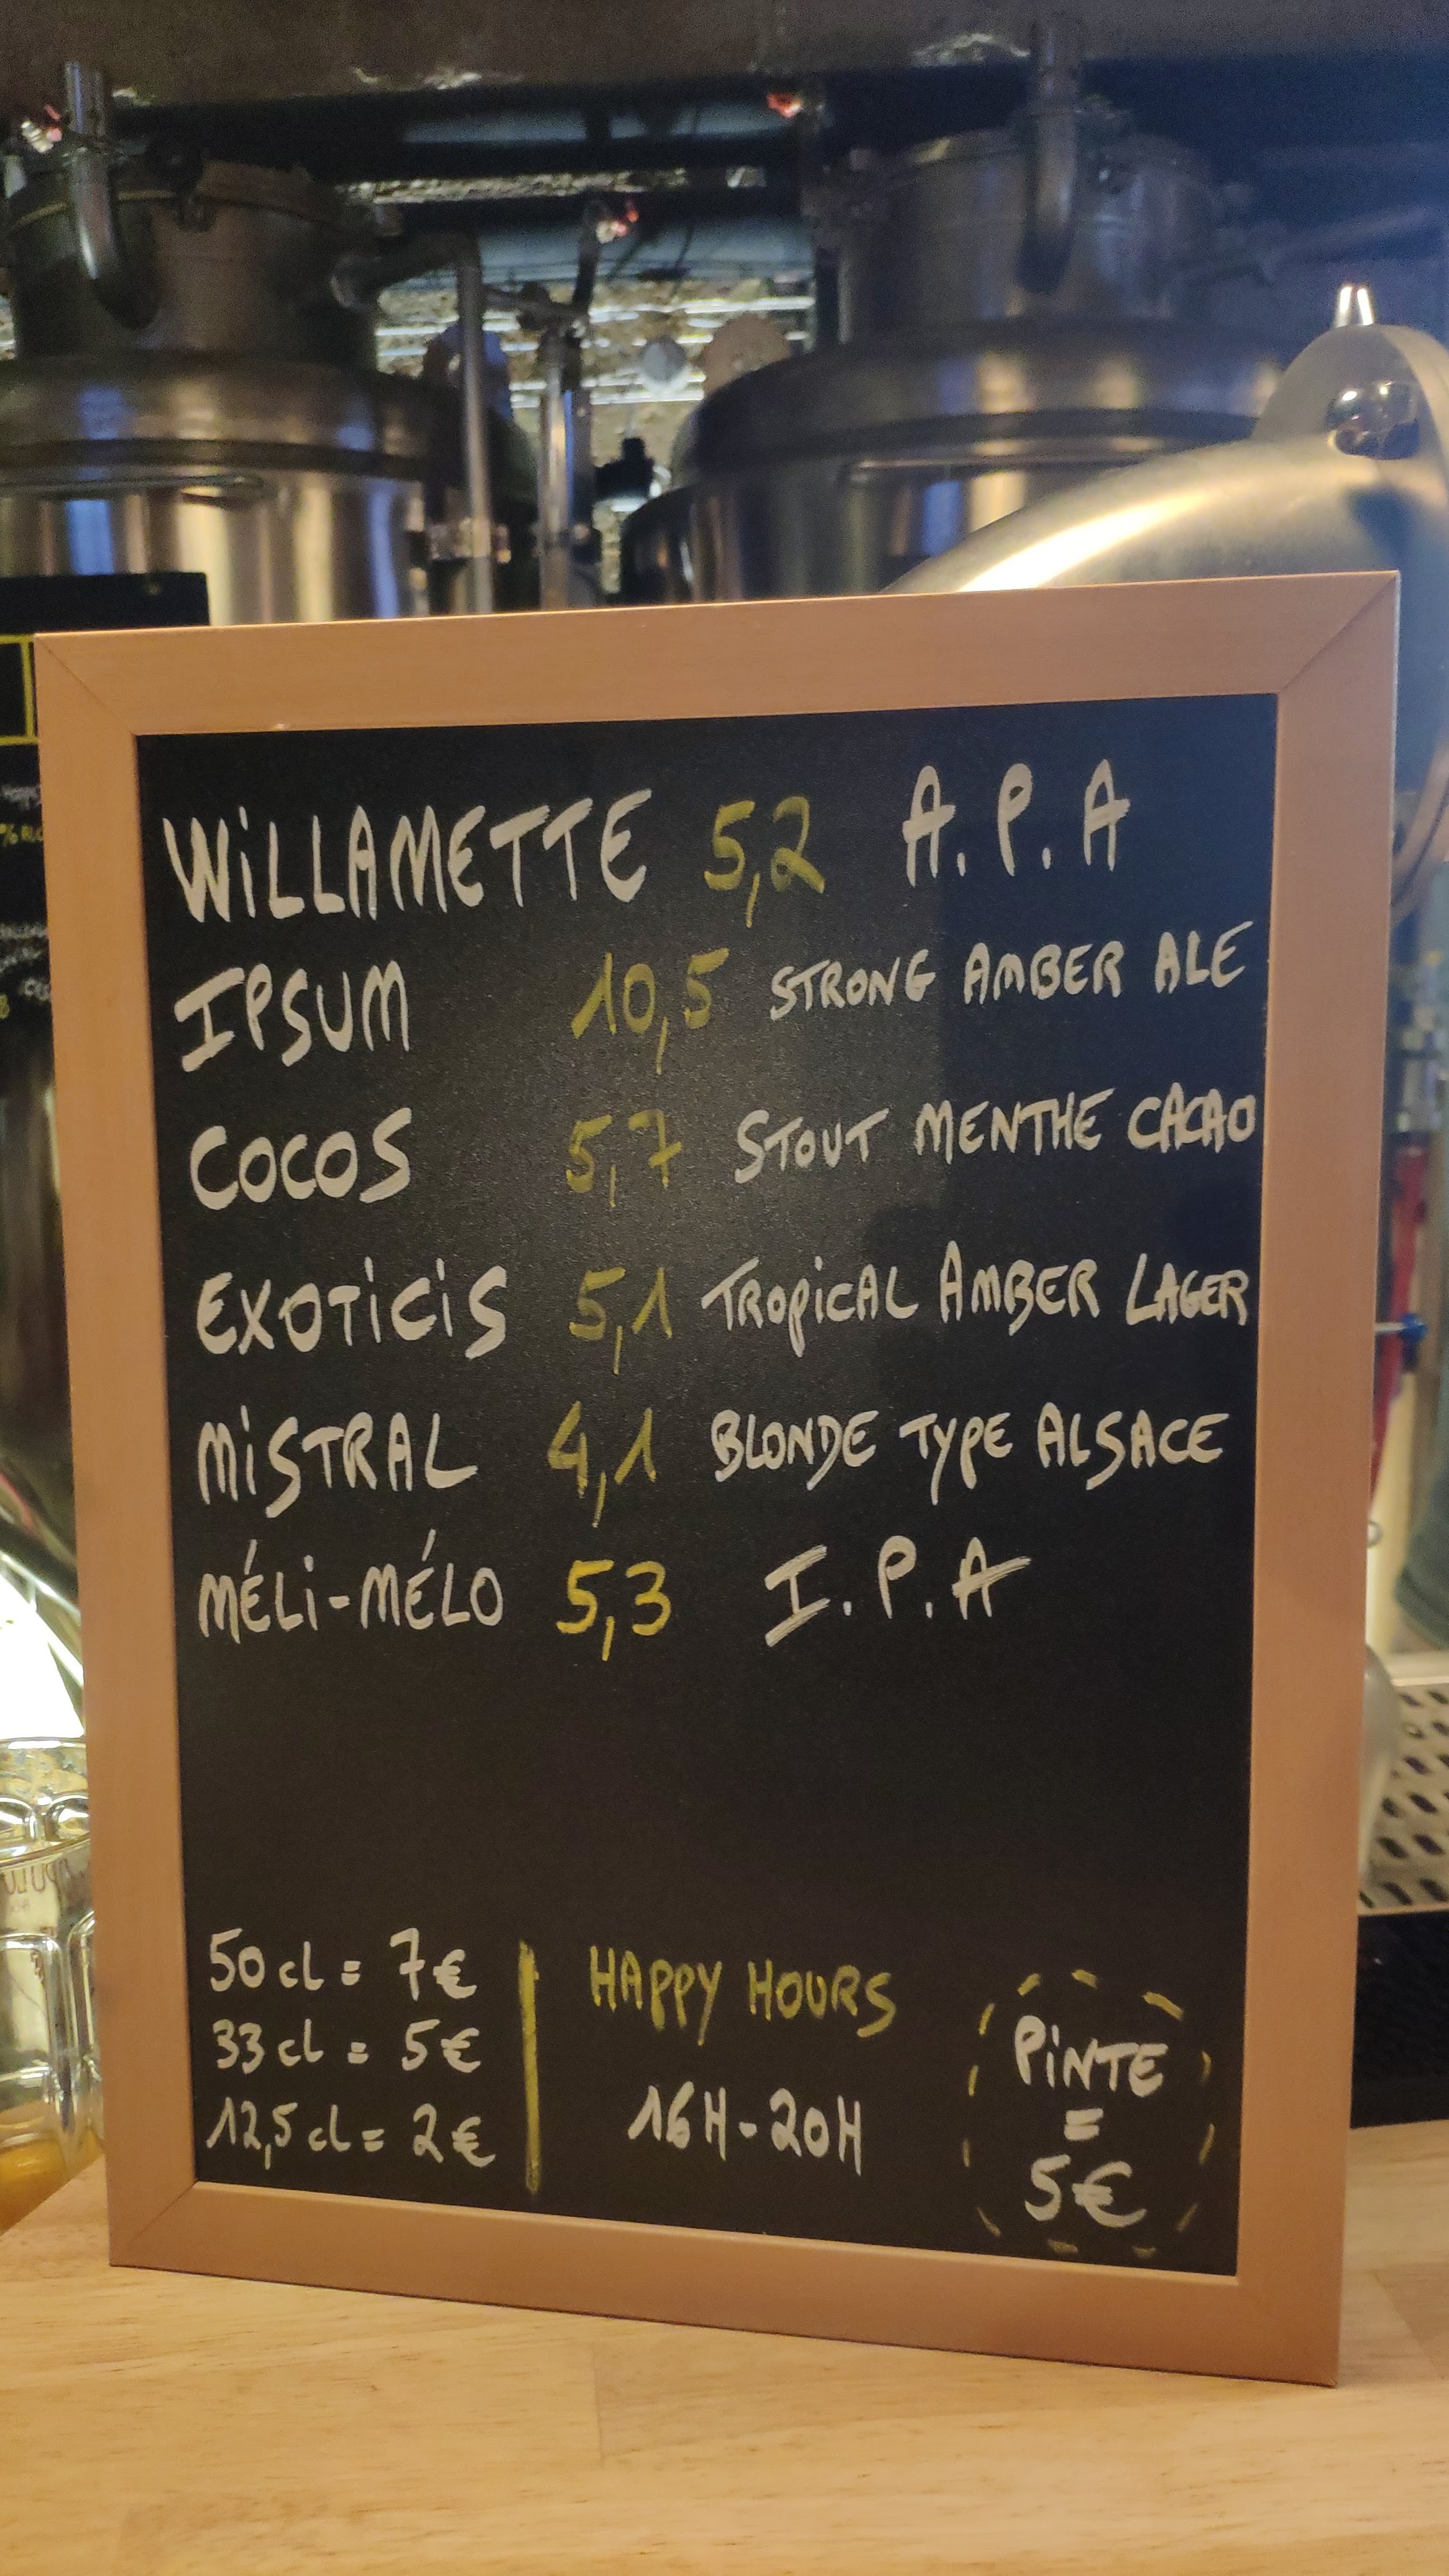 WiLLAMETTE 5,2 A.P.A
IPSUM 10,5 STRONG AMBER ALE
COCOS 5,7 STOUT MENTHE CACAO
EXOTiCiS 5,1 TROPiCAL AMBER LAGER
MiSTRAL 4,1 BLONDE TYPE ALSACE
MÉLi-MÉLO 5,3 I.P.A
50 cl = 7€
33 cl = 5€
12,5 cl = 2€
HAPPY HOURS
16H-20H
PiNTE
=
5€